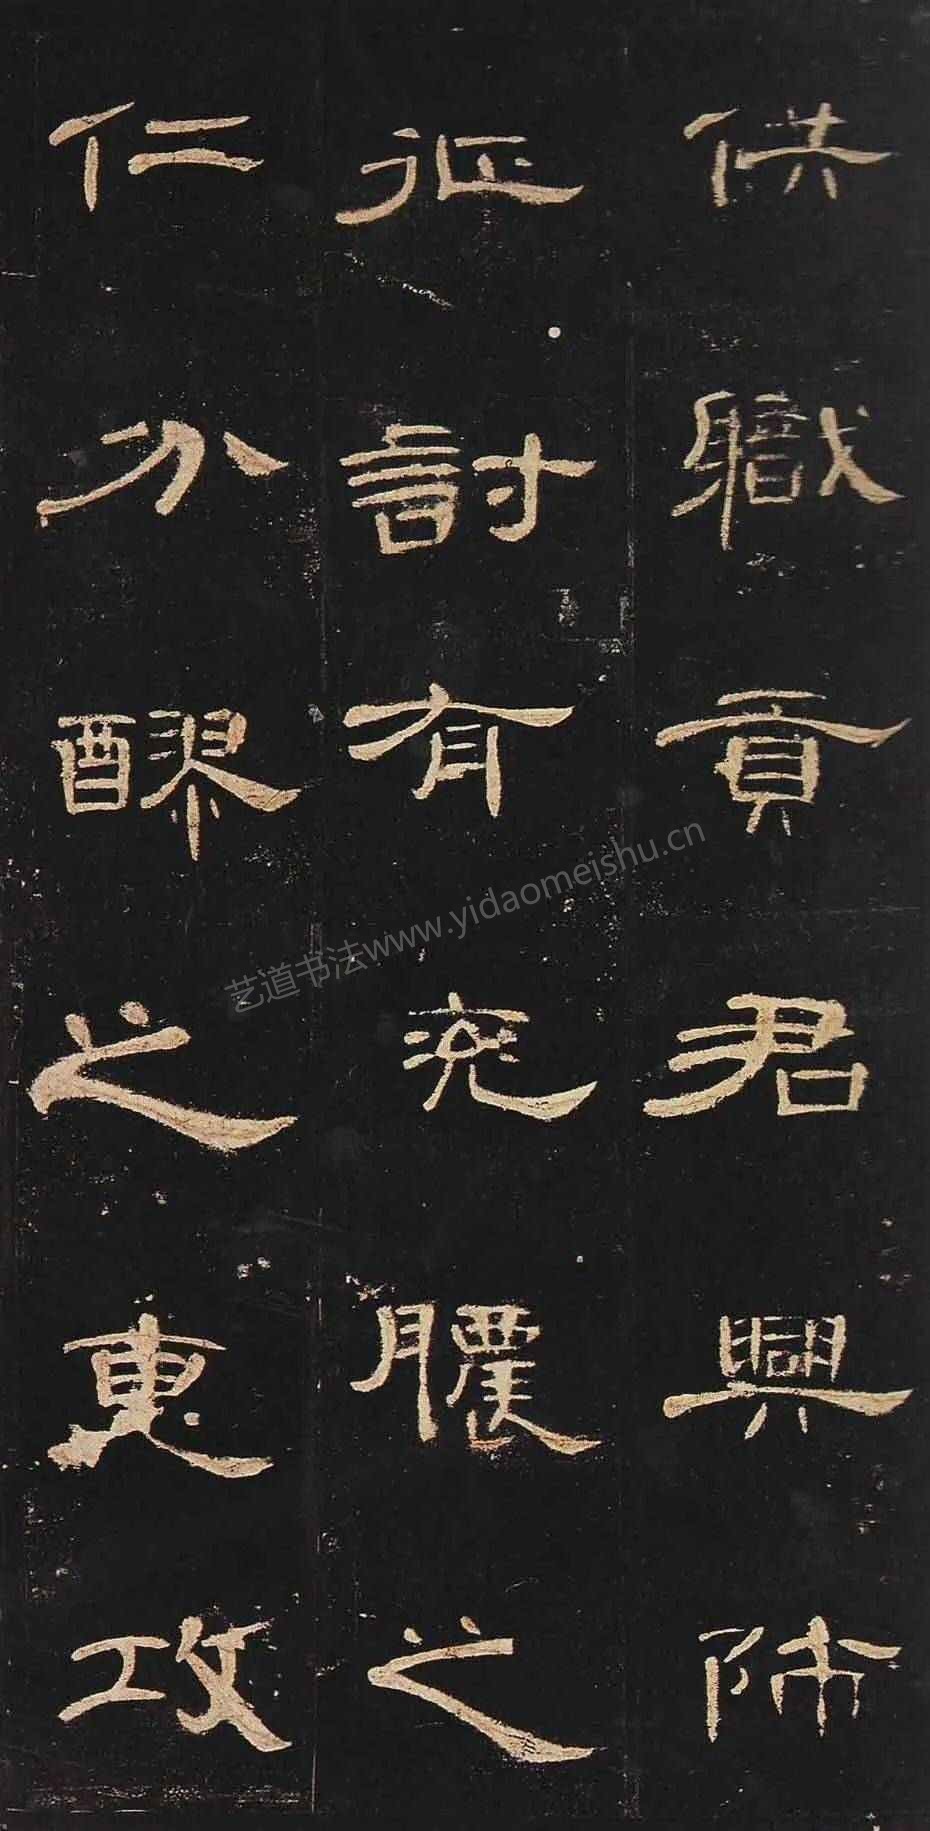 供職貢君興師
征討有兖膿之
仁分醪之惠攻
艺道书法www.yidaomeishu.cn